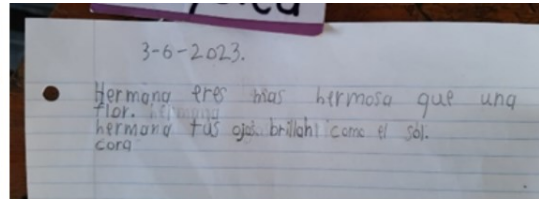 3-6-2023.
Hermana eres mas hermosa que una
flor. hermana
hermana tus ojos brillahi como el sol.
cora